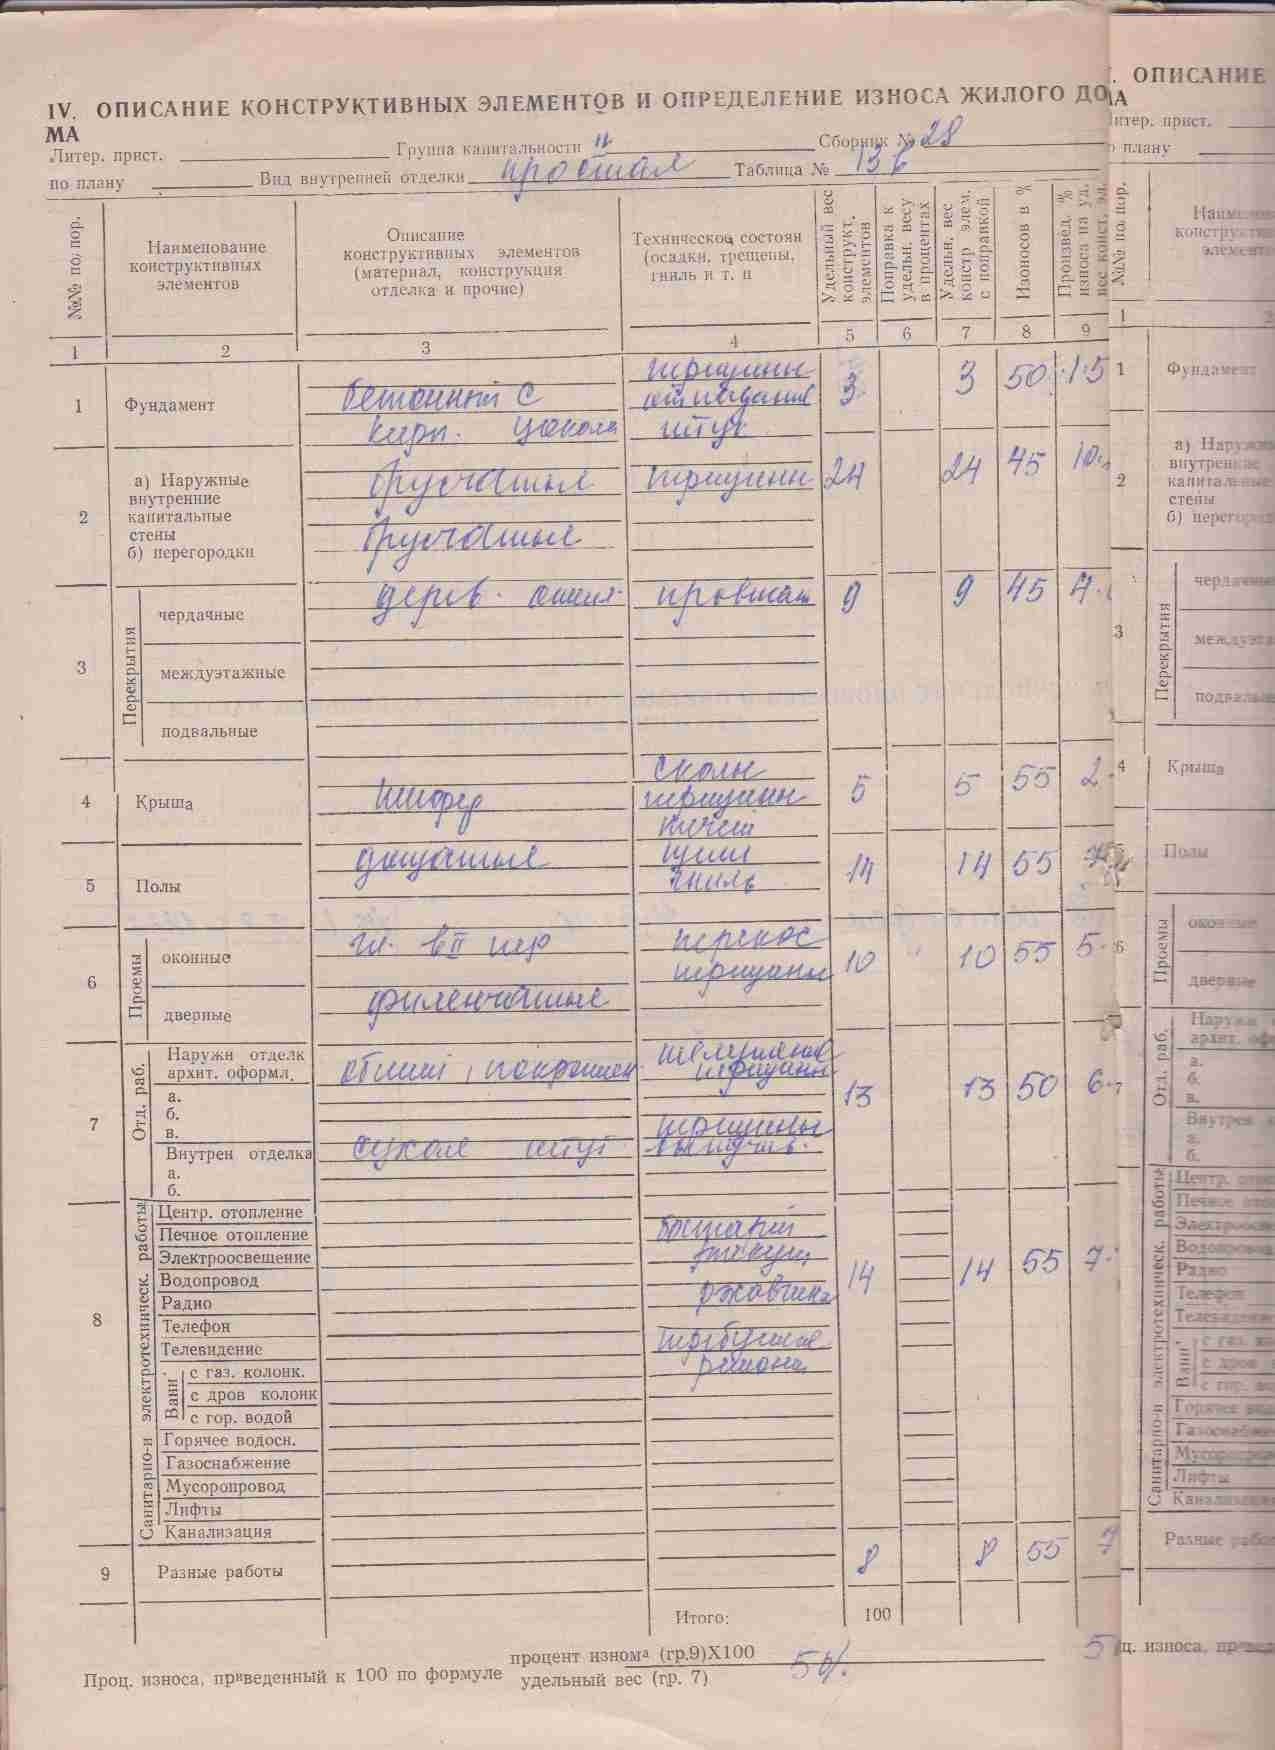 IV. ОПИСАНИЕ КОНСТРУКТИВНЫХ ЭЛЕМЕНТОВ И ОПРЕДЕЛЕНИЕ ИЗНОСА ЖИЛОГО ДО
МА
Литер. прист. Группа капитальности II Сборник № 28
по плану Вид внутренней отделки простая Таблица № 13б
№№ по пор.
Наименование конструктивных элементов
Описание конструктивных элементов (материал, конструкция отделка и прочие)
Техническое состоян (осадки, трещены, гниль и т. п
Удельный вес конструкт. элементов
Поправка к удельн. весу в процентах
Удельн. вес констр элем. с поправкой
Изоносов в %
Произвед. % износа на уд. вес конст. эл.
1 2 3 4 5 6 7 8 9
трещины
1 Фундамент бетонный с 3 3 50 1.5
кирп. цоколя штук
2 а) Наружные внутренние капитальные стены брусчатые трещины 24 24 45 10.
б) перегородки брусчатые
3 Перекрытия
чердачные дерев. провисан 9 9 45 4.
междуэтажные
подвальные
сколы
4 Крыша шифер трещины 5 5 55 2.
5 Полы дощатые щели 14 14 55 7
гниль
6 Проемы
оконные перекос 10 10 55 5.
трещины
дверные филенчатые
7 Отд. раб.
Наружн отделк шелушение
архит. оформл. обшит, трещины 13 13 50 6.
а.
б.
в. трещины
Внутрен отделка сухая штук
а.
б.
8 Санитарно-и электротехническ. работы
Центр. отопление
Печное отопление
Электроосвещение
Водопровод 14 14 55 7.
Радио ржавчина
Телефон
Телевидение требуется
Ванн. с газ. колонк. ремонт
с дров колонк
с гор. водой
Горячее водосн.
Газоснабжение
Мусоропровод
Лифты
Канализация
9 Разные работы 8 8 55
Итого: 100
Проц. износа, приведенный к 100 по формуле процент изнома (гр.9)Х100
удельный вес (гр. 7)
ОПИСАНИЕ
МА
итер. прист.
о плану
№№ по пор.
1
1 Фундамент
2 а) Наружн
внутренние
капитальные
стены
б) перегород
3 Перекрытия
чердачны
междуэта
подвальн
4 Крыша
Полы
6 Проемы
оконные
дверные
7 Отд. раб.
Наружн
архит. офо
а.
б.
в.
Внутрен
а.
б.
Санитарно-и электротехническ. работы
Центр. ото
Печное ото
Электроосв
Водопровод
Радио
Телефон
Телевидени
Ванн.
с газ. ко
с дров
с гор. во
Горячее вод
Газоснабже
Мусоропрово
Лифты
Канализация
Разные рабо
ц. износа, приве